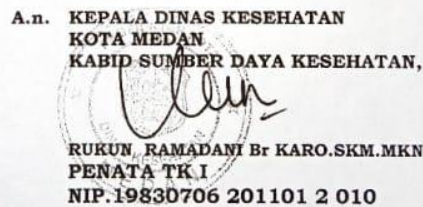 A.n. KEPALA DINAS KESEHATAN
KOTA MEDAN
KABID SUMBER DAYA KESEHATAN,
RUKUN RAMADANI Br KARO.SKM.MKN
PENATA TK I
NIP.19830706 201101 2 010